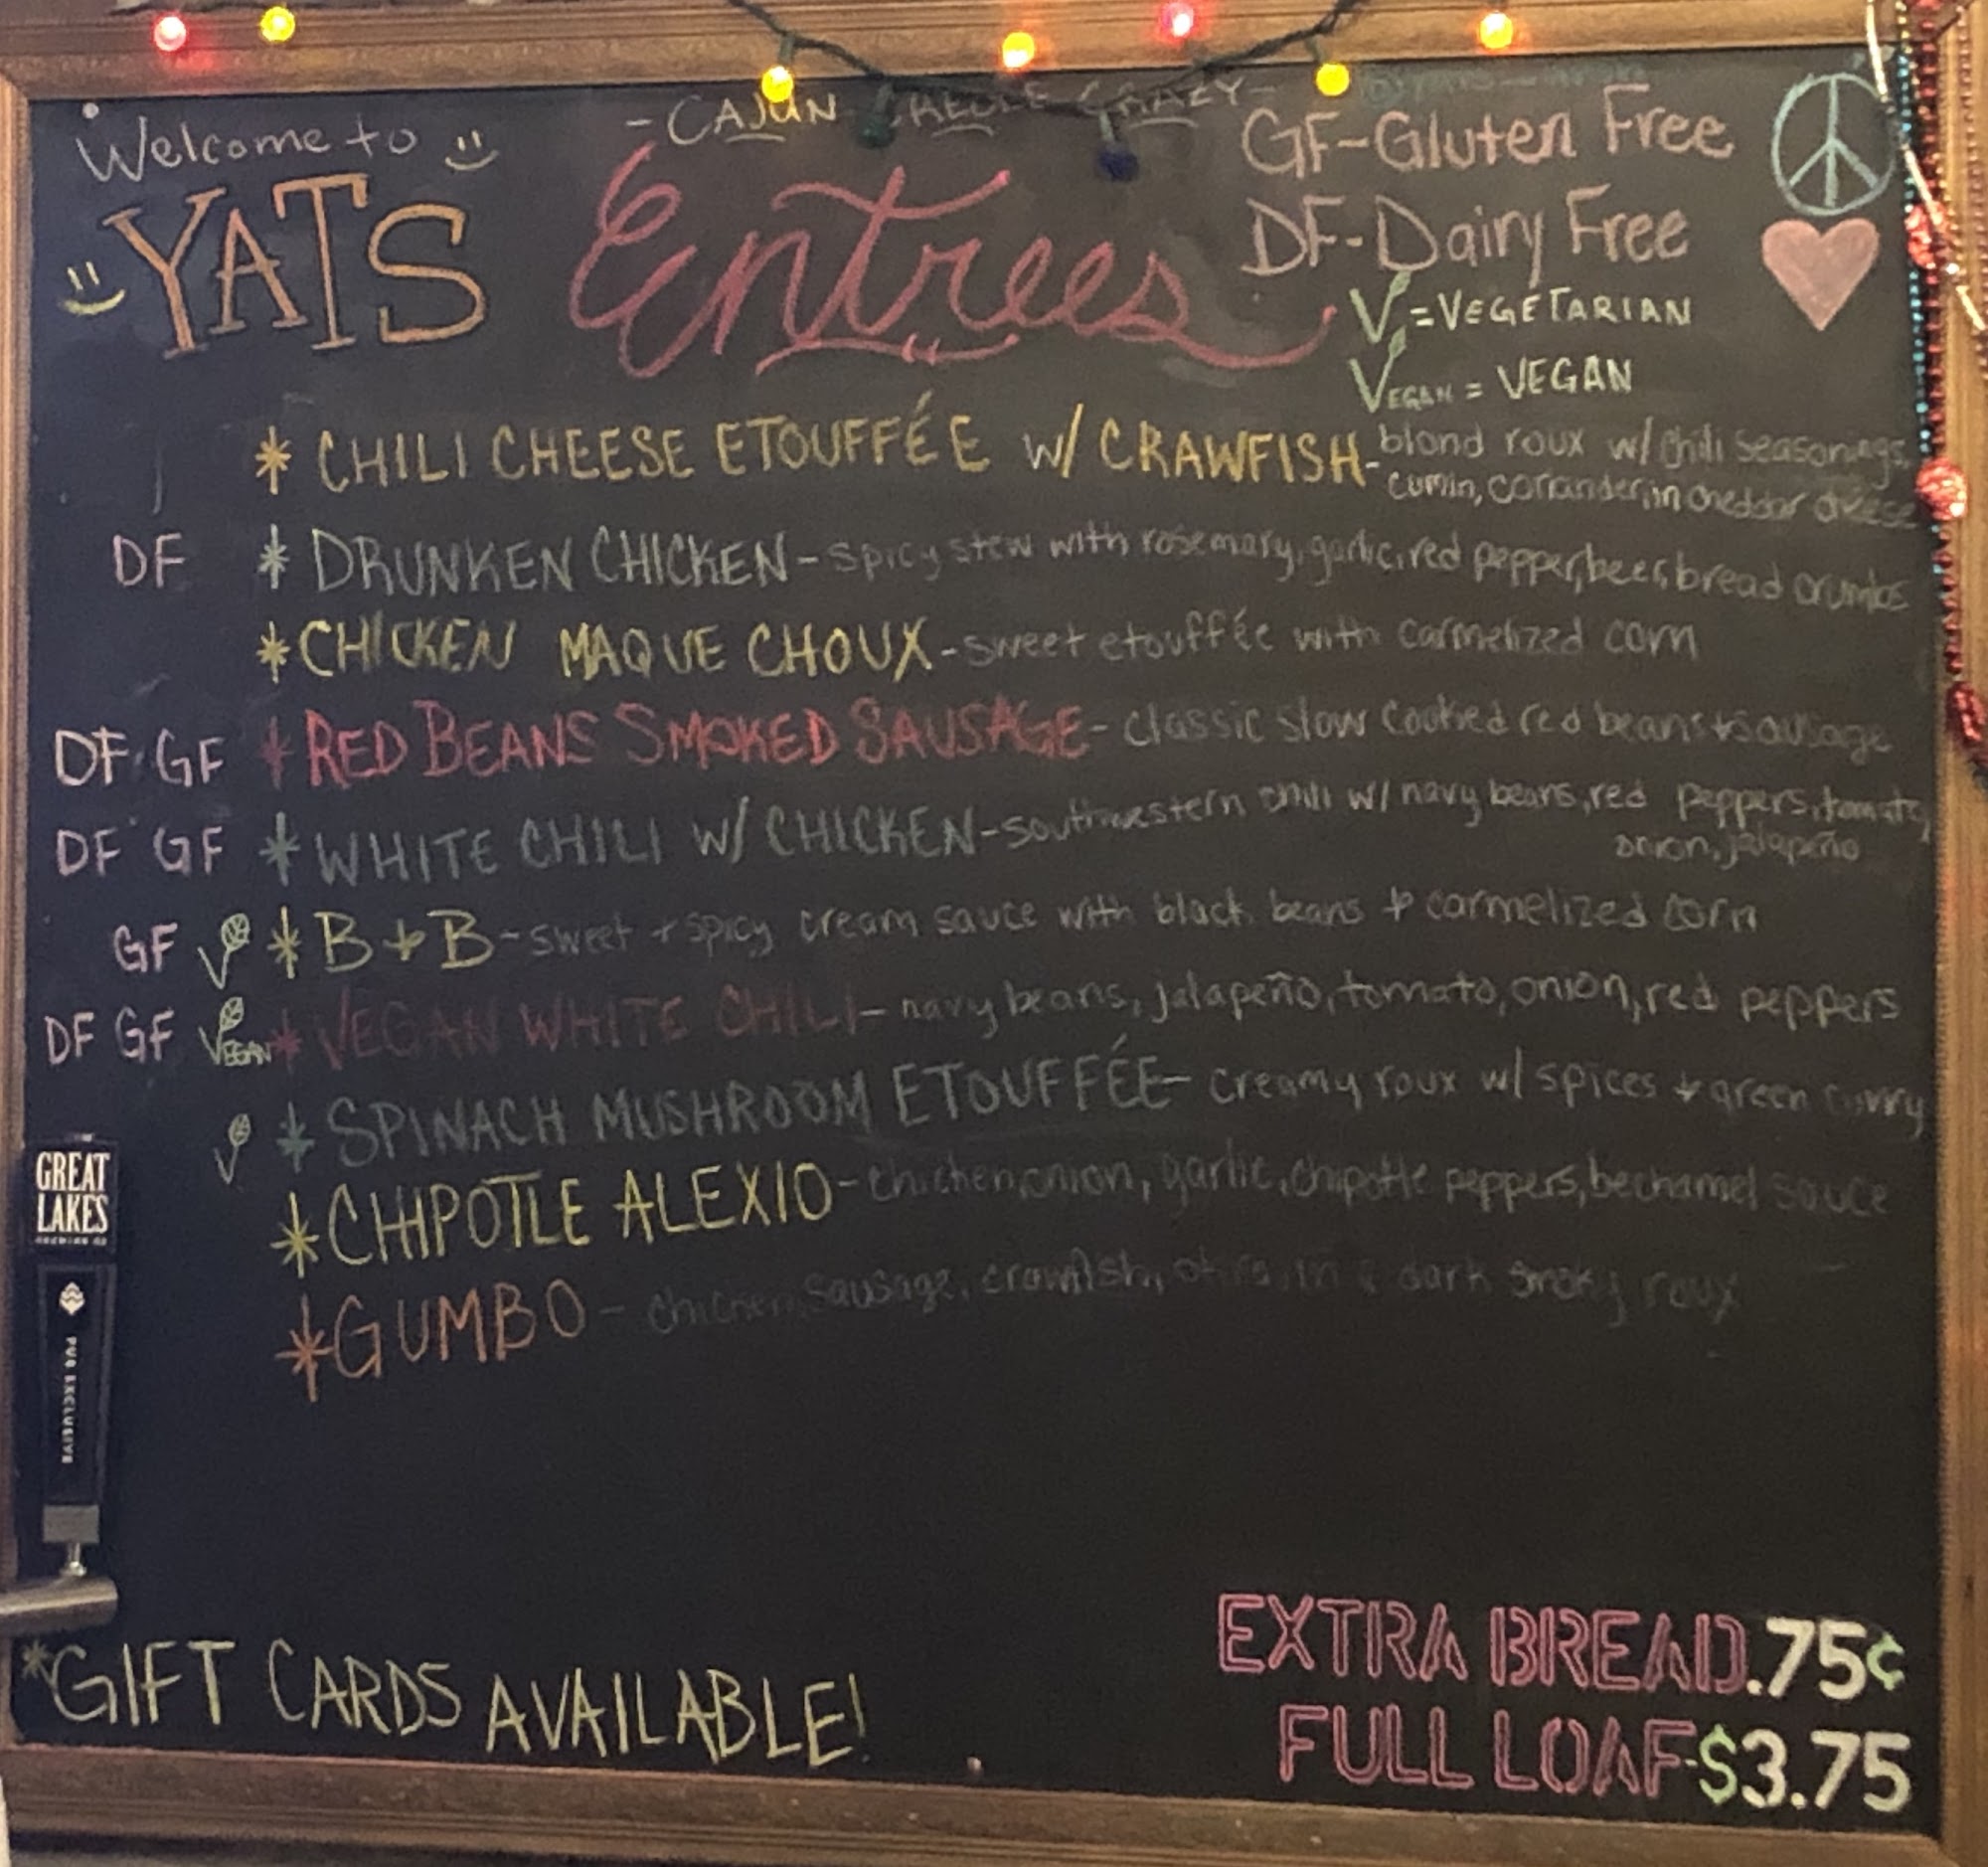 Welcome to
YATS
- CAJUN CREOLE CRAZY -
Entrees
GF-Gluten Free
DF-Dairy Free
V = VEGETARIAN
VEGAN = VEGAN
* CHILI CHEESE ETOUFFÉE w/ CRAWFISH - blond roux w/ chili seasonings,
cumin, coriander, in cheddar cheese
DF * DRUNKEN CHICKEN - spicy stew with rosemary, garlic, red pepper, beer, bread crumbs
* CHICKEN MAQUE CHOUX - sweet etouffée with carmelized corn
DF GF * RED BEANS SMOKED SAUSAGE - classic slow cooked red beans + sausage
DF GF * WHITE CHILI w/ CHICKEN - southwestern chili w/ navy beans, red peppers, tomato,
onion, jalapeño
GF V * B + B - sweet + spicy cream sauce with black beans + carmelized corn
DF GF VEGAN * VEGAN WHITE CHILI - navy beans, jalapeño, tomato, onion, red peppers
V * SPINACH MUSHROOM ETOUFFÉE - creamy roux w/ spices + green curry
* CHIPOTLE ALEXIO - chicken, onion, garlic, chipotle peppers, bechamel sauce
* GUMBO - chicken, sausage, crawfish, okra, in a dark smoky roux
GREAT
LAKES
BREWING CO
PUB EXCLUSIVE
*GIFT CARDS AVAILABLE!
EXTRA BREAD .75¢
FULL LOAF-$3.75